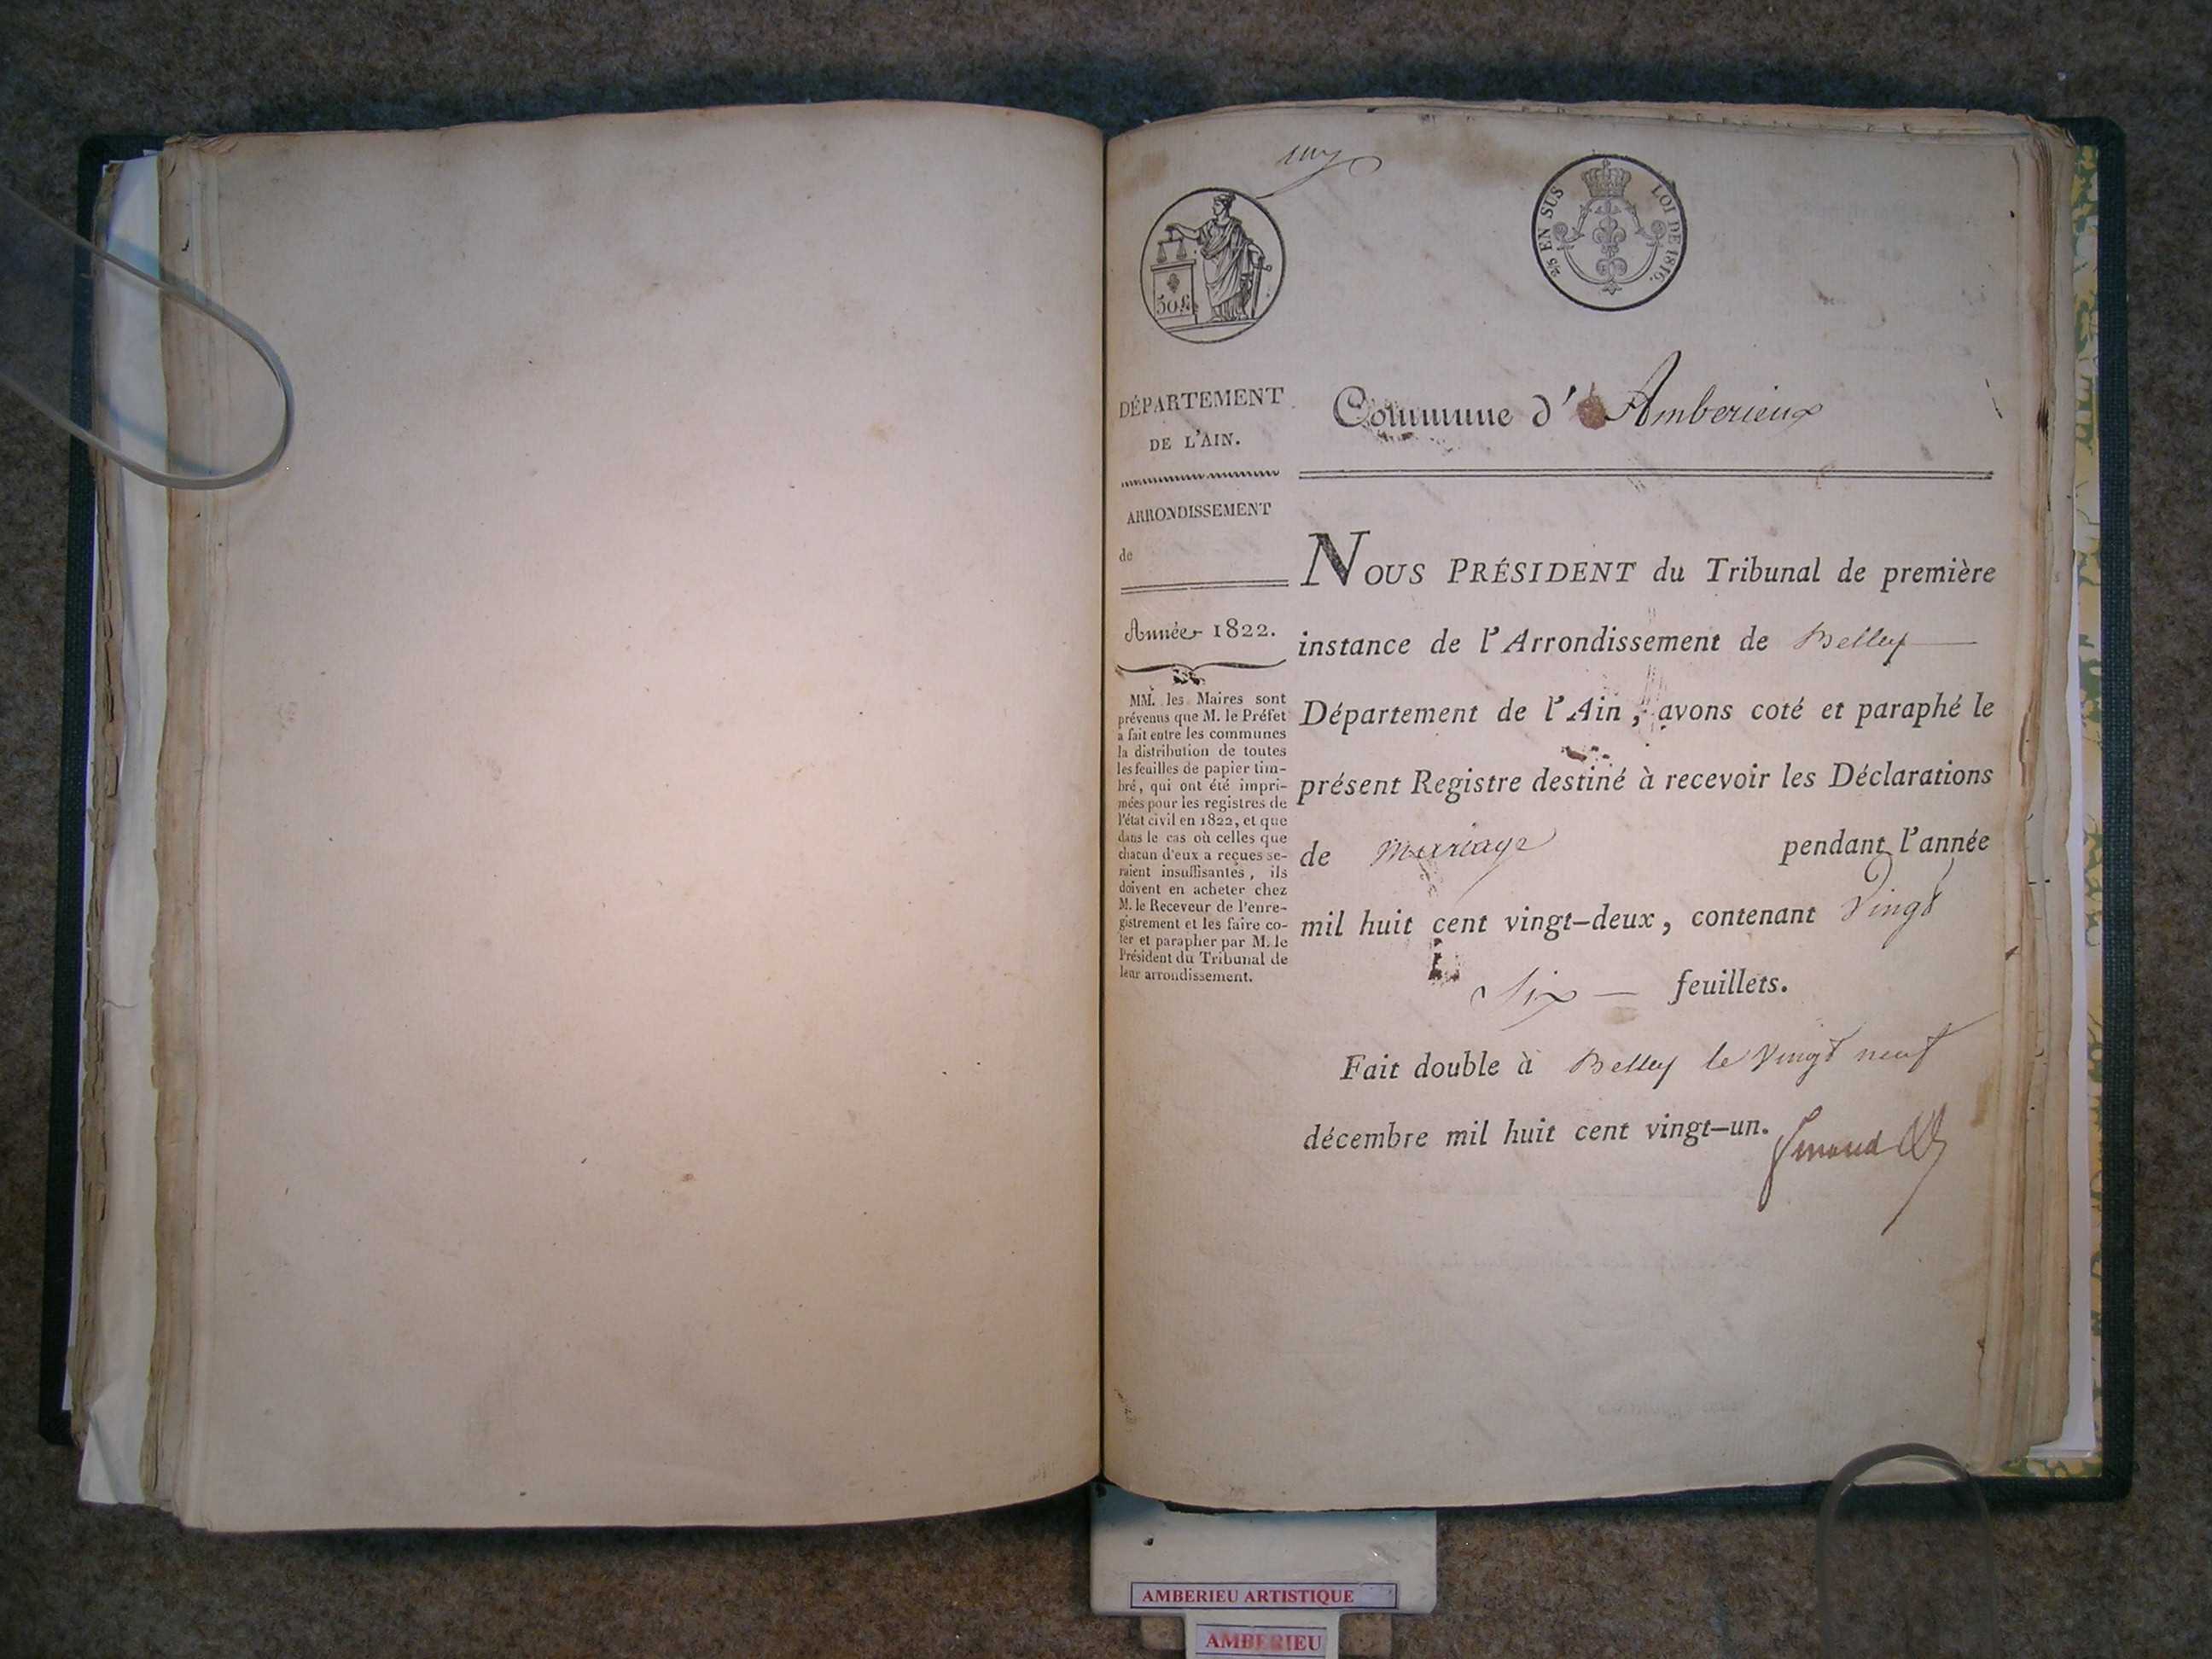 50 C.
2/5 EN SUS LOI DE 1816.
DÉPARTEMENT
DE L'AIN.
ARRONDISSEMENT
de
Année 1822.
MM. les Maires sont
prévenus que M. le Préfet
a fait entre les communes
la distribution de toutes
les feuilles de papier tim-
bré, qui ont été impri-
mées pour les registres de
l'état civil en 1822, et que
dans le cas où celles que
chacun d'eux a reçues se-
raient insuffisantes, ils
doivent en acheter chez
M. le Receveur de l'enre-
gistrement et les faire co-
ter et parapher par M. le
Président du Tribunal de
leur arrondissement.
Commune d' Amberieux
NOUS PRÉSIDENT du Tribunal de première
instance de l'Arrondissement de Belley
Département de l'Ain, avons coté et paraphé le
présent Registre destiné à recevoir les Déclarations
de Mariage pendant l'année
mil huit cent vingt-deux, contenant Vingt
Six — feuillets.
Fait double à Belley le Vingt neuf
décembre mil huit cent vingt-un.
AMBERIEU ARTISTIQUE
AMBERIEU